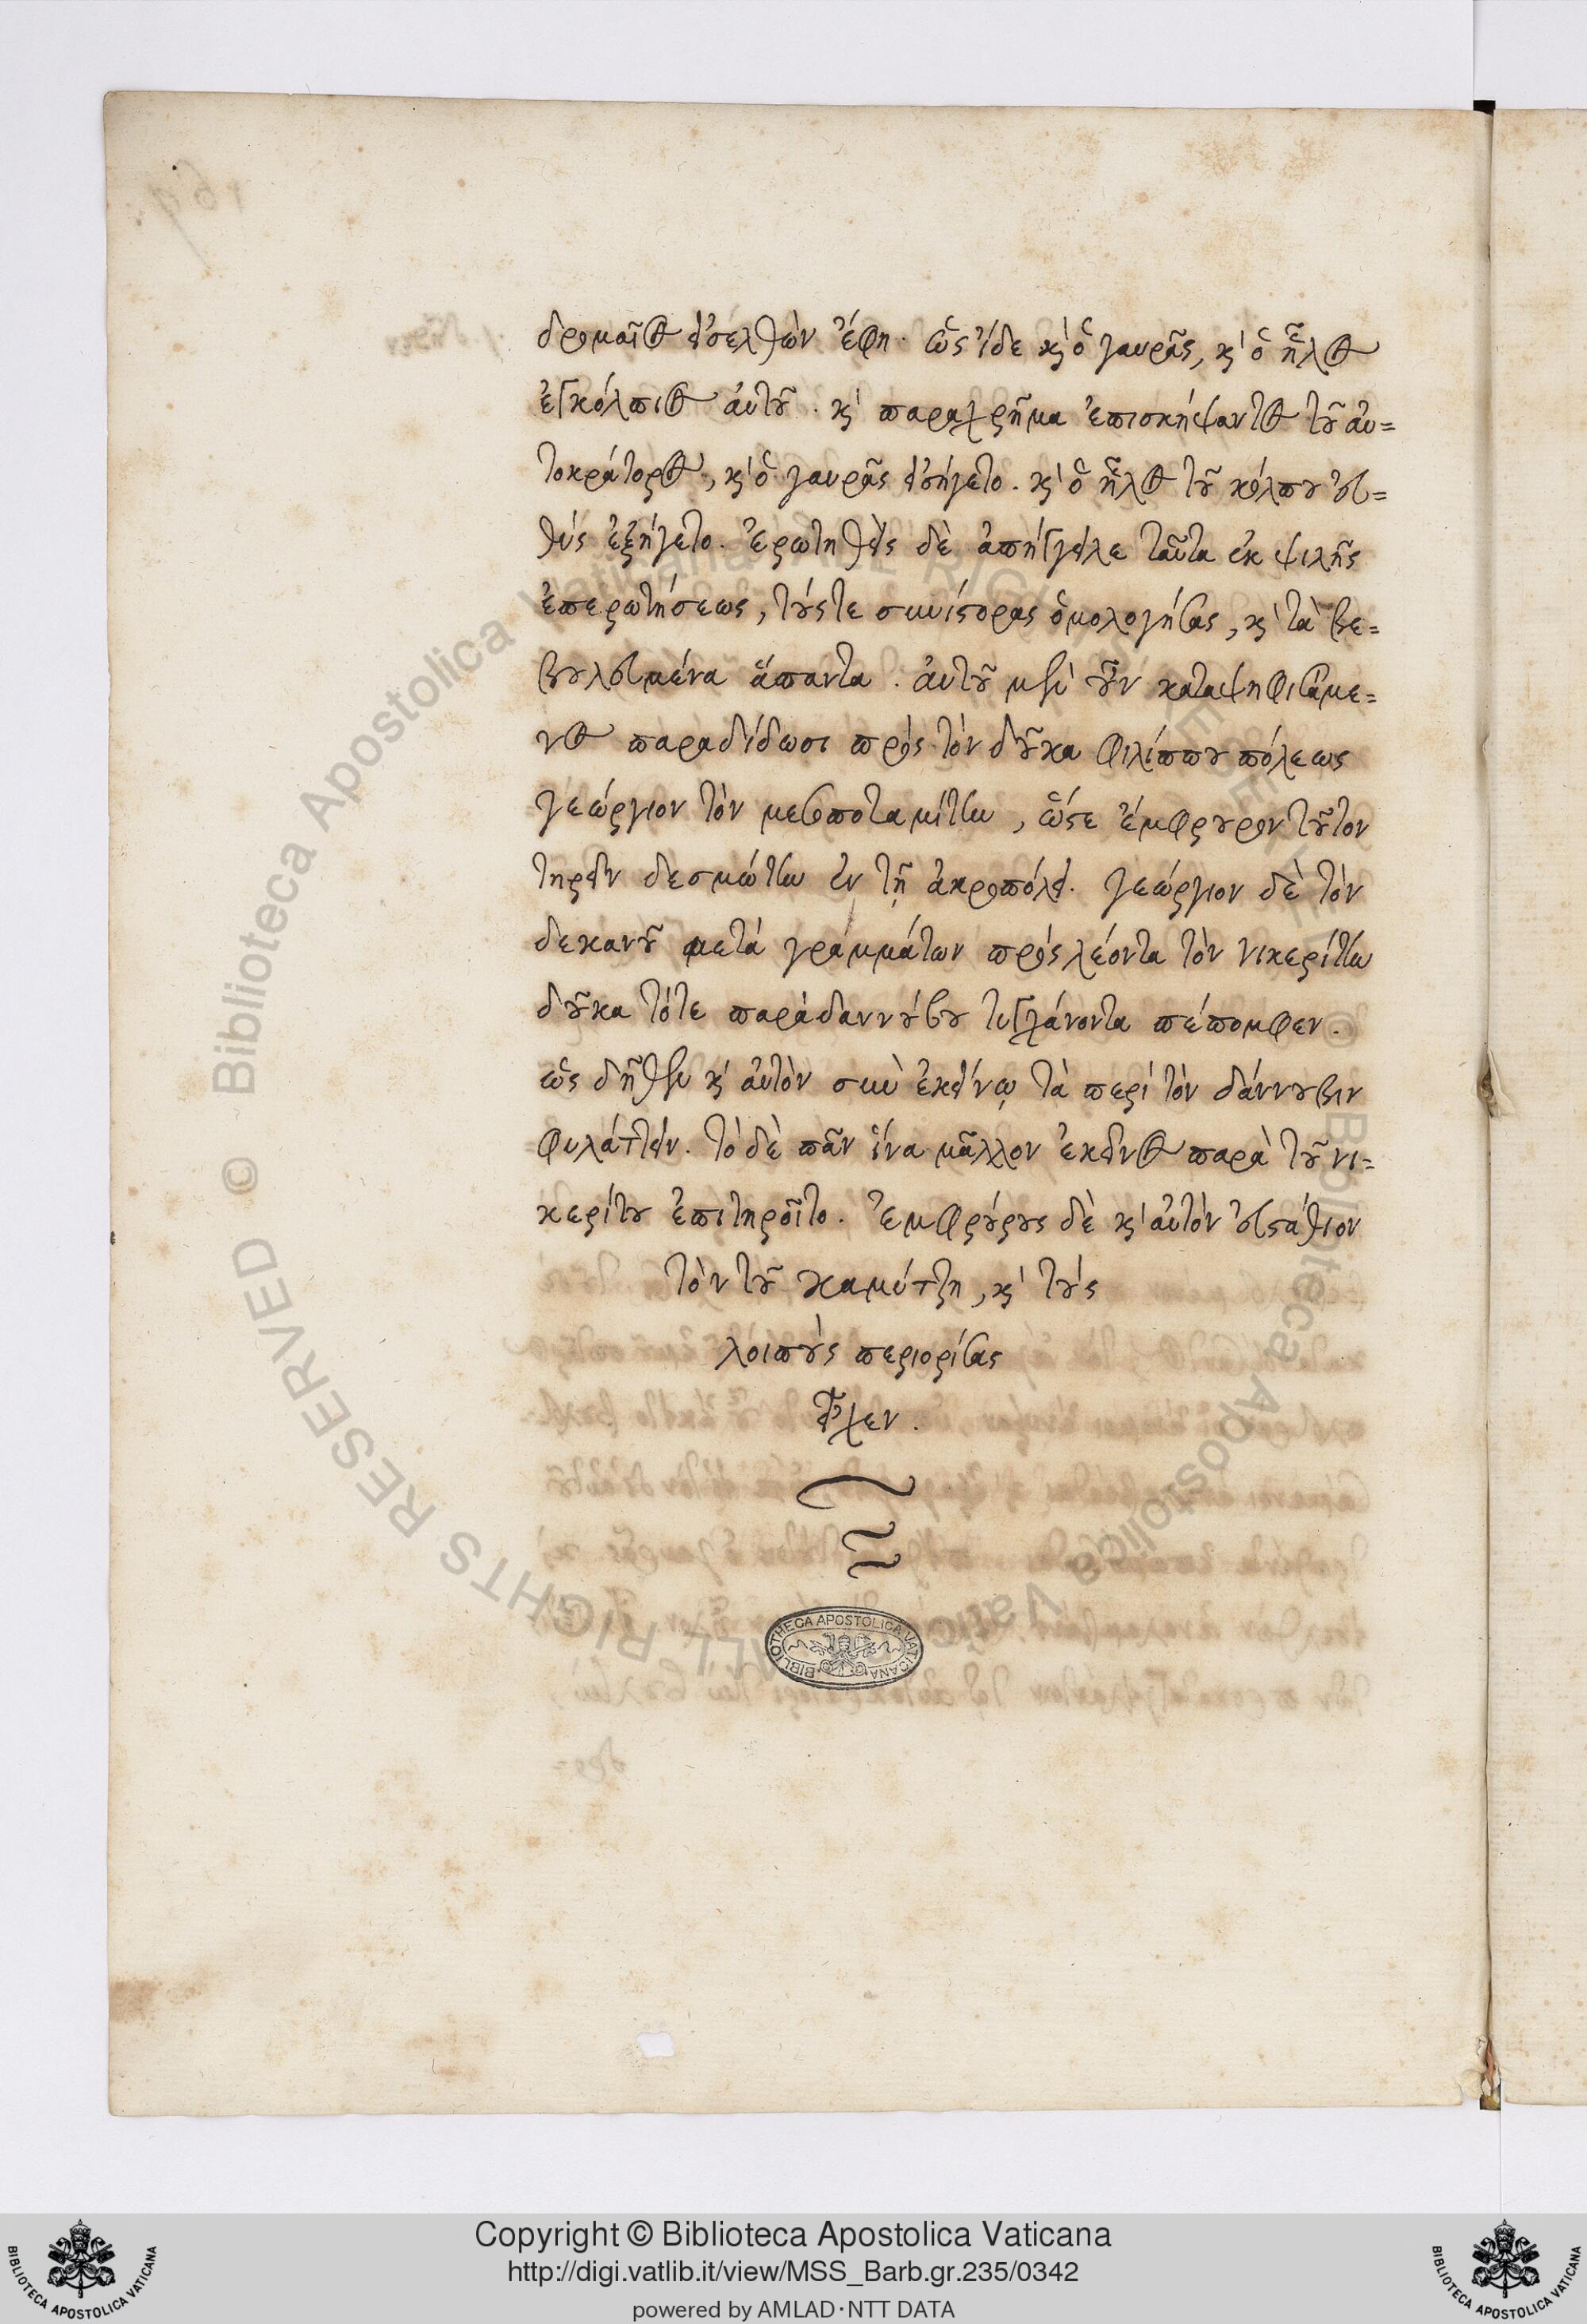 δρομαῖος εἰσελθὼν ἔφη. ὧς ἴδε κὶ ὁ γαυρᾶς, κὶ ὁ ἧλος
ἐγκόλπιος αὐτοῦ. κὶ παραχρῆμα ἐπισκήψαντος τοῦ αὐ=
τοκράτορος, κὶ ὁ γαυρᾶς εἰσήγετο. κὶ ὁ ἧλος τοῦ κόλπου εὐ=
θύς ἐξήγετο. ἐρωτηθεὶς δὲ ἀπήγγειλε ταῦτα ἐκ ψιλῆς
ἐπερωτήσεως, τούς τε συνίστορας ὁμολογήσας, κὶ τὰ βε=
βουλευμένα ἅπαντα. αὐτοῦ μὲν οὖν καταψηφισαμέ=
νος παραδίδωσι πρὸς τὸν δοῦκα Φιλίππου πόλεως
γεώργιον τὸν μεσοποταμίτην, ὥστε ἔμφρουρον τοῦτον
τηρεῖν δεσμώτην ἐν τῇ ἀκροπόλει. γεώργιον δὲ τὸν
δεκανοῦ μετά γραμμάτων πρός λέοντα τὸν νικερίτην
δοῦκα τότε παράδαννούβου τυγχάνοντα πέπομφεν.
ὡς δῆθεν κὶ αὐτὸν σὺν ἐκείνῳ τὰ περί τὸν δάννουβιν
φυλάττειν. τὸ δὲ πᾶν ἵνα μᾶλλον ἐκεῖνος παρὰ τοῦ νι=
κερίτου ἐπιτηροῖτο. ἐμφρούρους δὲ κὶ αὐτὸν εὐστάθιον
τὸν τοῦ καμύτζη, κὶ τούς
λοιποὺς περιορίσας
εἶχεν.
BIBLIOTHECA APOSTOLICA VATICANA
Copyright © Biblioteca Apostolica Vaticana
http://digi.vatlib.it/view/MSS_Barb.gr.235/0342
powered by AMLAD·NTT DATA